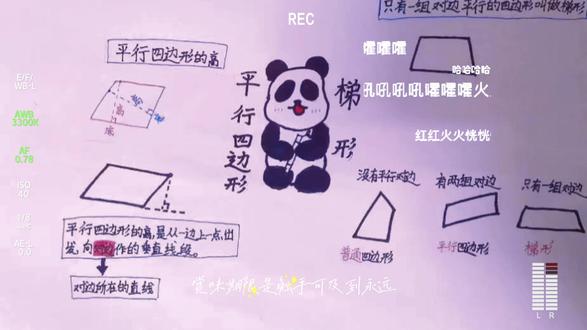 REC
只有一组对边平行的四边形叫做梯形
平行四边形的高
嚯嚯嚯
哈哈哈哈
吼吼吼吼嚯嚯嚯火
红红火火恍恍
平行四边形
梯形
高
底
高
底
没有平行对边
有两组对边
只有一组对边
普通四边形
平行四边形
梯形
平行四边形的高,是从一边上一点出
发,向对边作的垂直线段。
对边所在的直线
赏味期限是触手可及到永远
E/F/
WB-L
AWB
3300K
AF
0.78
ISO
40
1/8
AE-L
0.0
L R